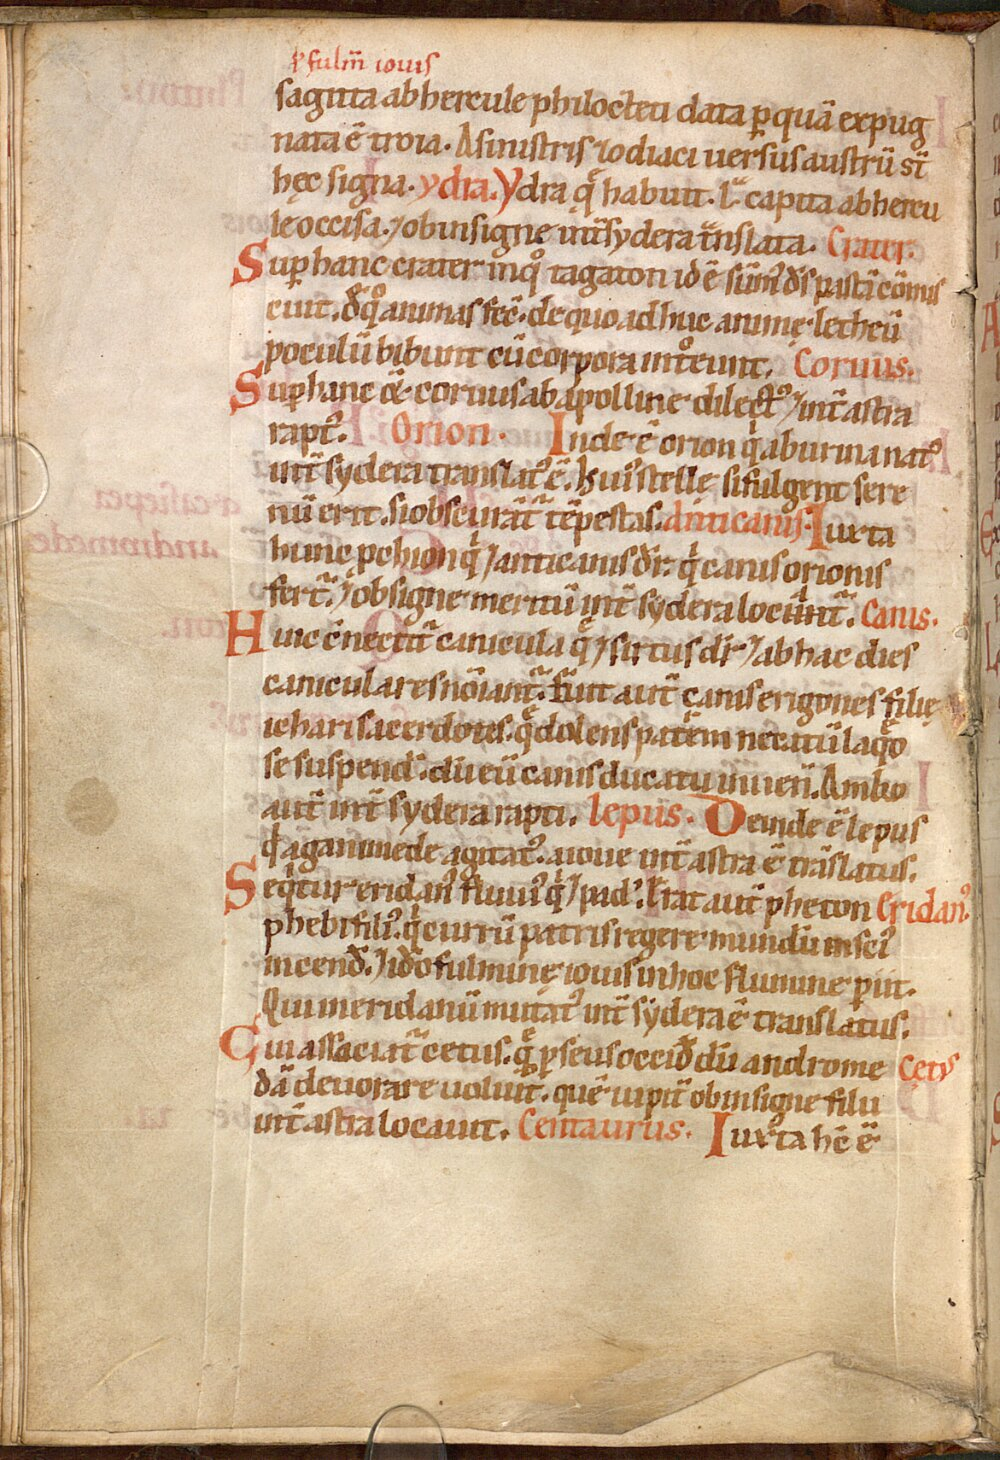 ł fulm̄ iouis
sagitta ab hercule philocteti data p quā expug
nata ē troia. A sinistris zodiaci uersus austrū sī
hęc signa. ydra. Ydra q̨ habuit .L. capita ab hercu
le occisa. ⁊ ob insigne int̄ sydera t̄nslata. Crater.
Sup hanc crater in qͦ tagaton id ē sūmꝰ ds̄
ciut. qͦ animas fec̄. de quo adhuc animę letheū
poculū bibunt cū corpora introeunt. Coruus.
Sup hanc ē coruus ab apolline dilectꝰ ⁊ int̄ astra
raptꝰ. Orion. Inde ē orion qͥ ab urina natꝰ
int̄ sydera translatꝰ ē. huiꝰ stellę si fulgent sere
nū erit. si obscurāt̄ tēpestas. Anticanis. Iuxta
hunc pchion q̨ ⁊ anticanis dr̄. qͥ canis orionis
fert̄. ⁊ ob signe meritū int̄ sydera locant̄. Canis.
Huic cn̄ectit̄ canicula q̨ ⁊ sirius dr̄ ⁊ ab hac dies
caniculares nōinant̄. canis erigones filię
ichari sacerdotis. q̨ dolens patrem necatū laqͦ
se suspend̄. dū eū canis ducatu inuen̄. Ambo
aut̄ int̄ sydera rapti. lepus. Deinde ē lepus
q̄ aganimede agitatꝰ. ioue int̄ astra ē trāslatus.
Seqͥtur eridanꝰ fluuiꝰ qͥ ⁊ padꝰ. Erat aut̄ pheton Eridanꝰ.
phebi filiꝰ. qͥ currū patris regere mundū insciꝰ
incend̄. ⁊ ido fulminę iouis in hoc flumine piit.
Qui in eridanū mutatꝰ int̄ sydera ē translatus.
Cui associat̄ cetus. q̨ pseus occid̄ dū androme Cetꝰ
dā deuorare uoluit. quē iupit̄ ob insigne filii
int̄ astra locauit. Centaurus. Iuxta hc̄ ē